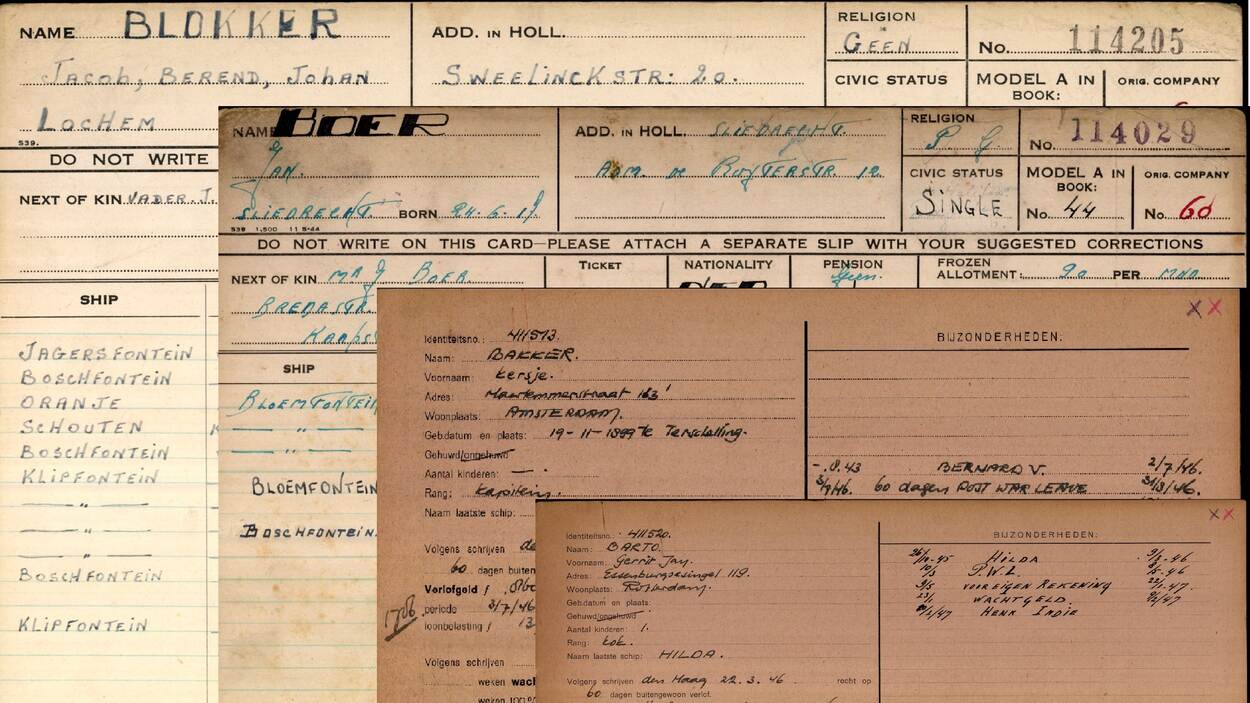 NAME BLOKKER
Jacob, BEREND, Johan
LOCHEM
S39.
ADD. IN HOLL.
SWEELINCKSTR: 20.
RELIGION
GEEN
No. 114205
CIVIC STATUS
MODEL A IN BOOK:
ORIG. COMPANY
DO NOT WRITE
NEXT OF KIN VADER. J.
SHIP
JAGERSFONTEIN
BOSCHFONTEIN
ORANJE
SCHOUTEN
BOSCHFONTEIN
KLIPFONTEIN
— „ —
— „ —
— „ —
BOSCHFONTEIN
KLIPFONTEIN
NAME BOER
JAN.
SLIEDRECHT. BORN 24.6.19
S39 1,500 11 5-44
ADD. IN HOLL. SLIEDRECHT.
ADM. DE RUYTERSTR. 12.
RELIGION
P G.
No. 114029
CIVIC STATUS
SINGLE
MODEL A IN BOOK:
No. 44
ORIG. COMPANY
No. 60
DO NOT WRITE ON THIS CARD—PLEASE ATTACH A SEPARATE SLIP WITH YOUR SUGGESTED CORRECTIONS
NEXT OF KIN BOER.
BREDASTR.
TICKET
NATIONALITY
PENSION
Geen.
FROZEN
ALLOTMENT: 90 PER MND
SHIP
BLOEMFONTEIN
— „ —
— „ —
BLOEMFONTEIN
BOSCHFONTEIN.
Identiteitsno.: 411513.
Naam: BAKKER.
Voornaam: Kersje.
Adres: Haarlemmerstraat 163'
Woonplaats: AMSTERDAM.
Geb.datum en plaats: 19-11-1899 te Terschelling.
Gehuwd/ongehuwd
Aantal kinderen: — .
Rang: Kapitein.
Naam laatste schip:
Volgens schrijven de
60 dagen buiten
Verlofgeld f
periode 3/7/46
loonbelasting f 13
Volgens schrijven
weken wach
weken 100%
BIJZONDERHEDEN:
-.8.43 BERNARD V. 2/7/46.
3/7/46. 60 dagen POST WAR LEAVE 31/8/46.
Identiteitsno.: 411520.
Naam: BARTO.
Voornaam: Gerrit Jan.
Adres: Essenburgsesingel 119.
Woonplaats: Rotterdam.
Geb.datum en plaats:
Gehuwd/ongehuwd
Aantal kinderen: 1.
Rang: kok.
Naam laatste schip: HILDA.
Volgens schrijven den Haag 22.3.46 recht op
60 dagen buitengewoon verlof.
BIJZONDERHEDEN:
HILDA
P.W.L.
VOOR EIGEN REKENING
WACHTGELD
HENK Indie